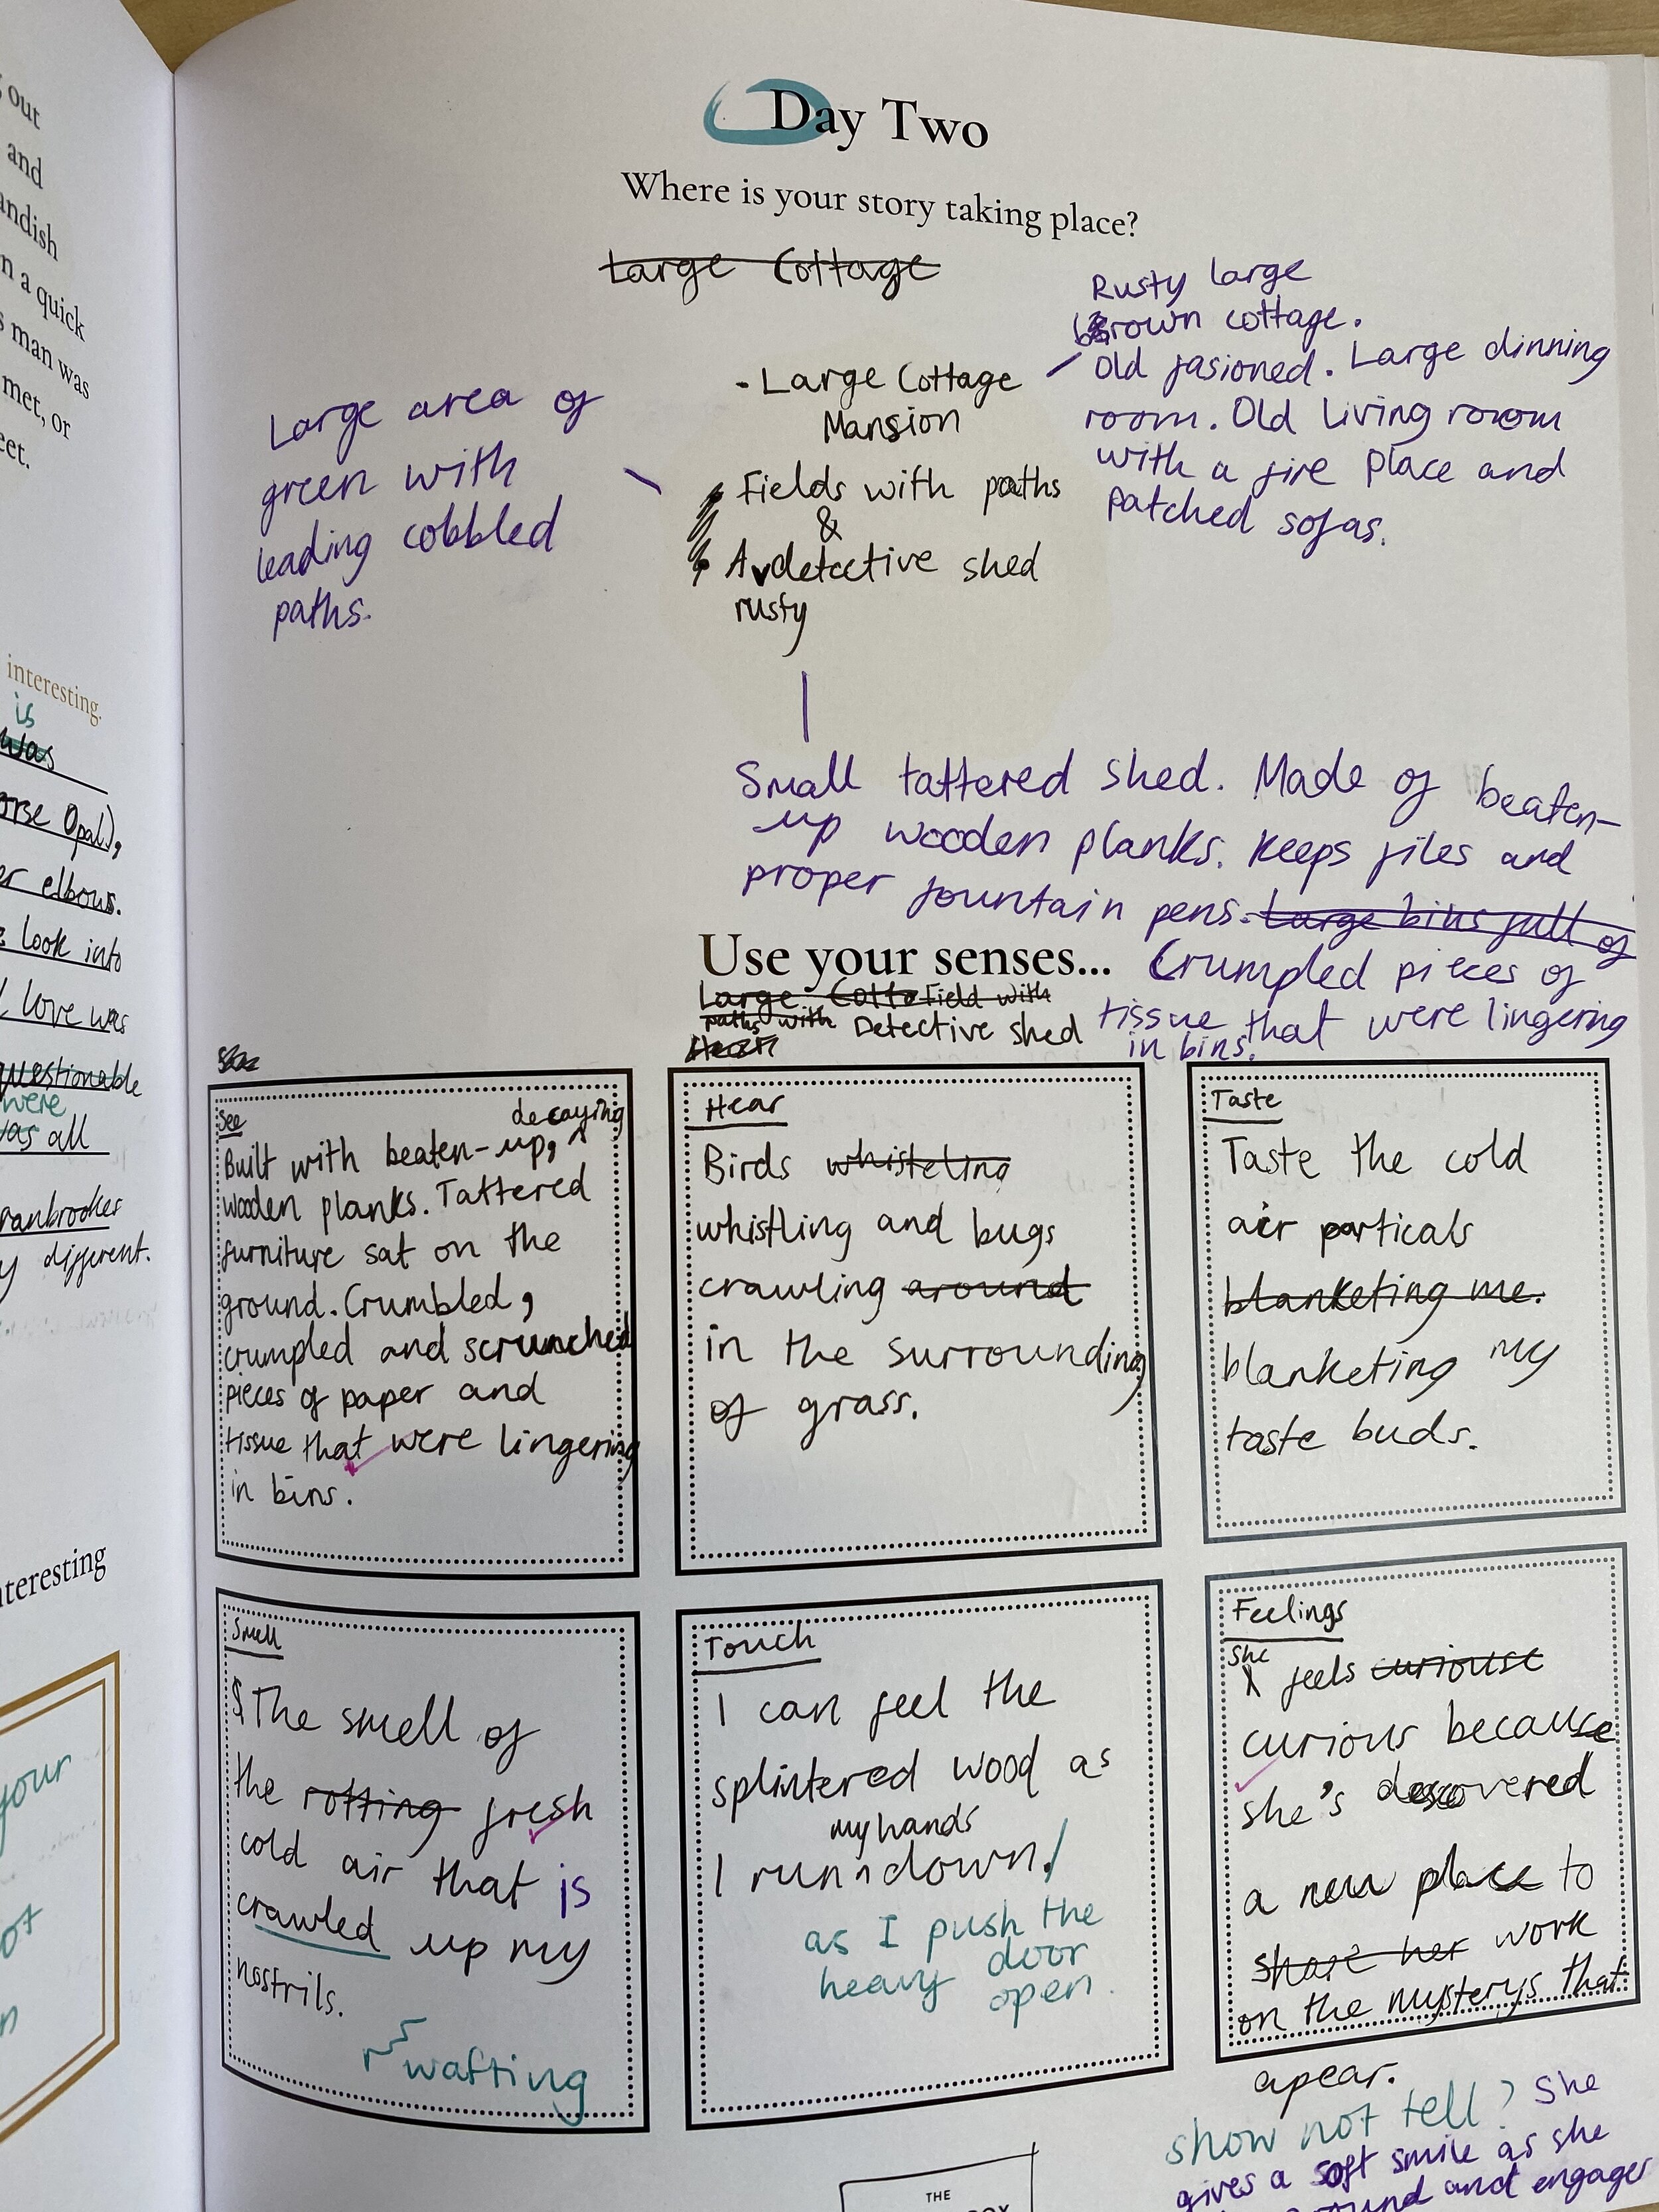 out
and
andish
n a quick
s man was
met, or
eet.
interesting.
is
was
orse Opal),
er elbows.
look into
love was
questionable
were
was all
ranbrooker
y different.
nteresting
your
ot
n
Day Two
Where is your story taking place?
Large Cottage
Large area of
green with
leading cobbled
paths.
- Large Cottage
Mansion
Fields with paths
&
A detective shed
rusty
Rusty large
brown cottage.
Old fasioned. Large dinning
room. Old living room
with a fire place and
patched sofas.
Small tattered shed. Made of beaten-
up wooden planks. Keeps files and
proper fountain pens. Large bins full of
Crumpled pieces of
tissue that were lingering
in bins.
Use your senses...
Large Cotta Field with
paths with Detective shed
See
decaying
Built with beaten-up,
wooden planks. Tattered
furniture sat on the
ground. Crumbled,
crumpled and scrunched
pieces of paper and
tissue that were lingering
in bins.
Hear
Birds whisteling
whistling and bugs
crawling around
in the surrounding
of grass.
Taste
Taste the cold
air particals
blanketing me.
blanketing my
taste buds.
Smell
The smell of
the rotting fresh
cold air that is
crawled up my
nostrils.
wafting
Touch
I can feel the
splintered wood as
my hands
I run down.
as I push the
heavy door
open.
Feelings
She
I feels curiouse
curious because
she's descovered
a new place to
share her work
on the mysterys that
apear.
show not tell? She
gives a soft smile as she
and engages
THE